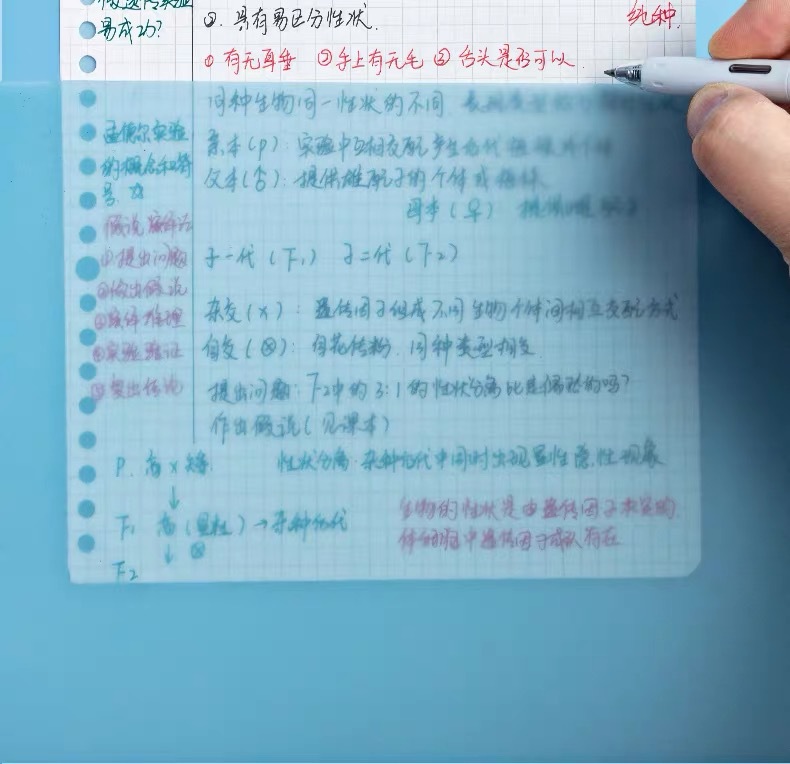 易成功?
②. 具有易区分性状.
纯种.
① 有无耳垂 ② 手上有无毛 ③ 舌头是否可以
同种生物同一性状的不同
孟德尔实验
的概念和符
号.
亲本(P): 实验中互相交配产生后代
父本(♂): 提供雄配子的个体或植株.
母本(♀)
假说演绎法
①提出问题
②做出假说
③演绎推理
④实验验证
⑤得出结论
子一代(F₁) 子二代(F₂)
杂交(×): 遗传因子组成不同生物个体间相互交配方式
自交(⊗): 自花传粉. 同种类型相交
提出问题: F₂中的3:1的性状分离比是偶然的吗?
作出假说(见课本)
P. 高 × 矮. 性状分离. 杂种后代中同时出现显性隐性现象
↓
F₁ 高(显性) → 杂种后代
↓ ⊗
F₂
生物的性状是由遗传因子决定的
体细胞中遗传因子成对存在